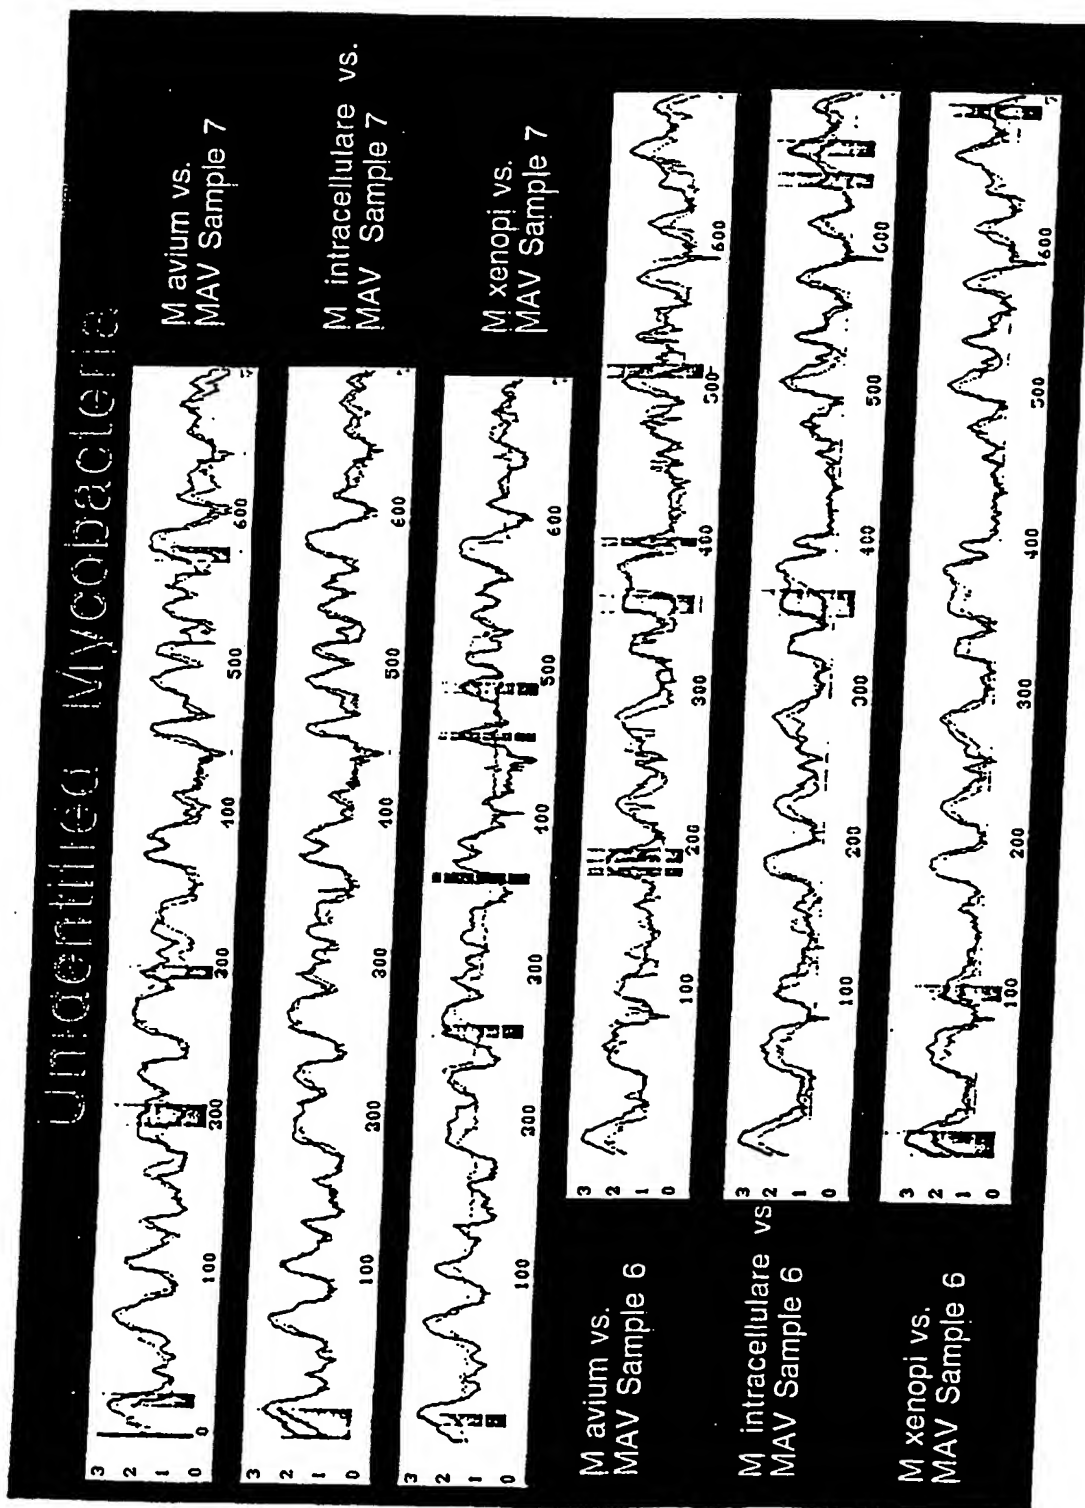 Unidentified Mycobacteria
3 2 1 0
0 100 200 300 400 500 600
M avium vs.
MAV Sample 7
3 2 1 0
100 200 300 400 500 600
M intracellulare vs.
MAV Sample 7
3 2 1 0
100 200 300 400 500 600
M xenopi vs.
MAV Sample 7
M avium vs.
MAV Sample 6
3 2 1 0
100 200 300 400 500 600
M intracellulare vs.
MAV Sample 6
3 2 1 0
100 200 300 400 500 600
M xenopi vs.
MAV Sample 6
3 2 1 0
100 200 300 400 500 600